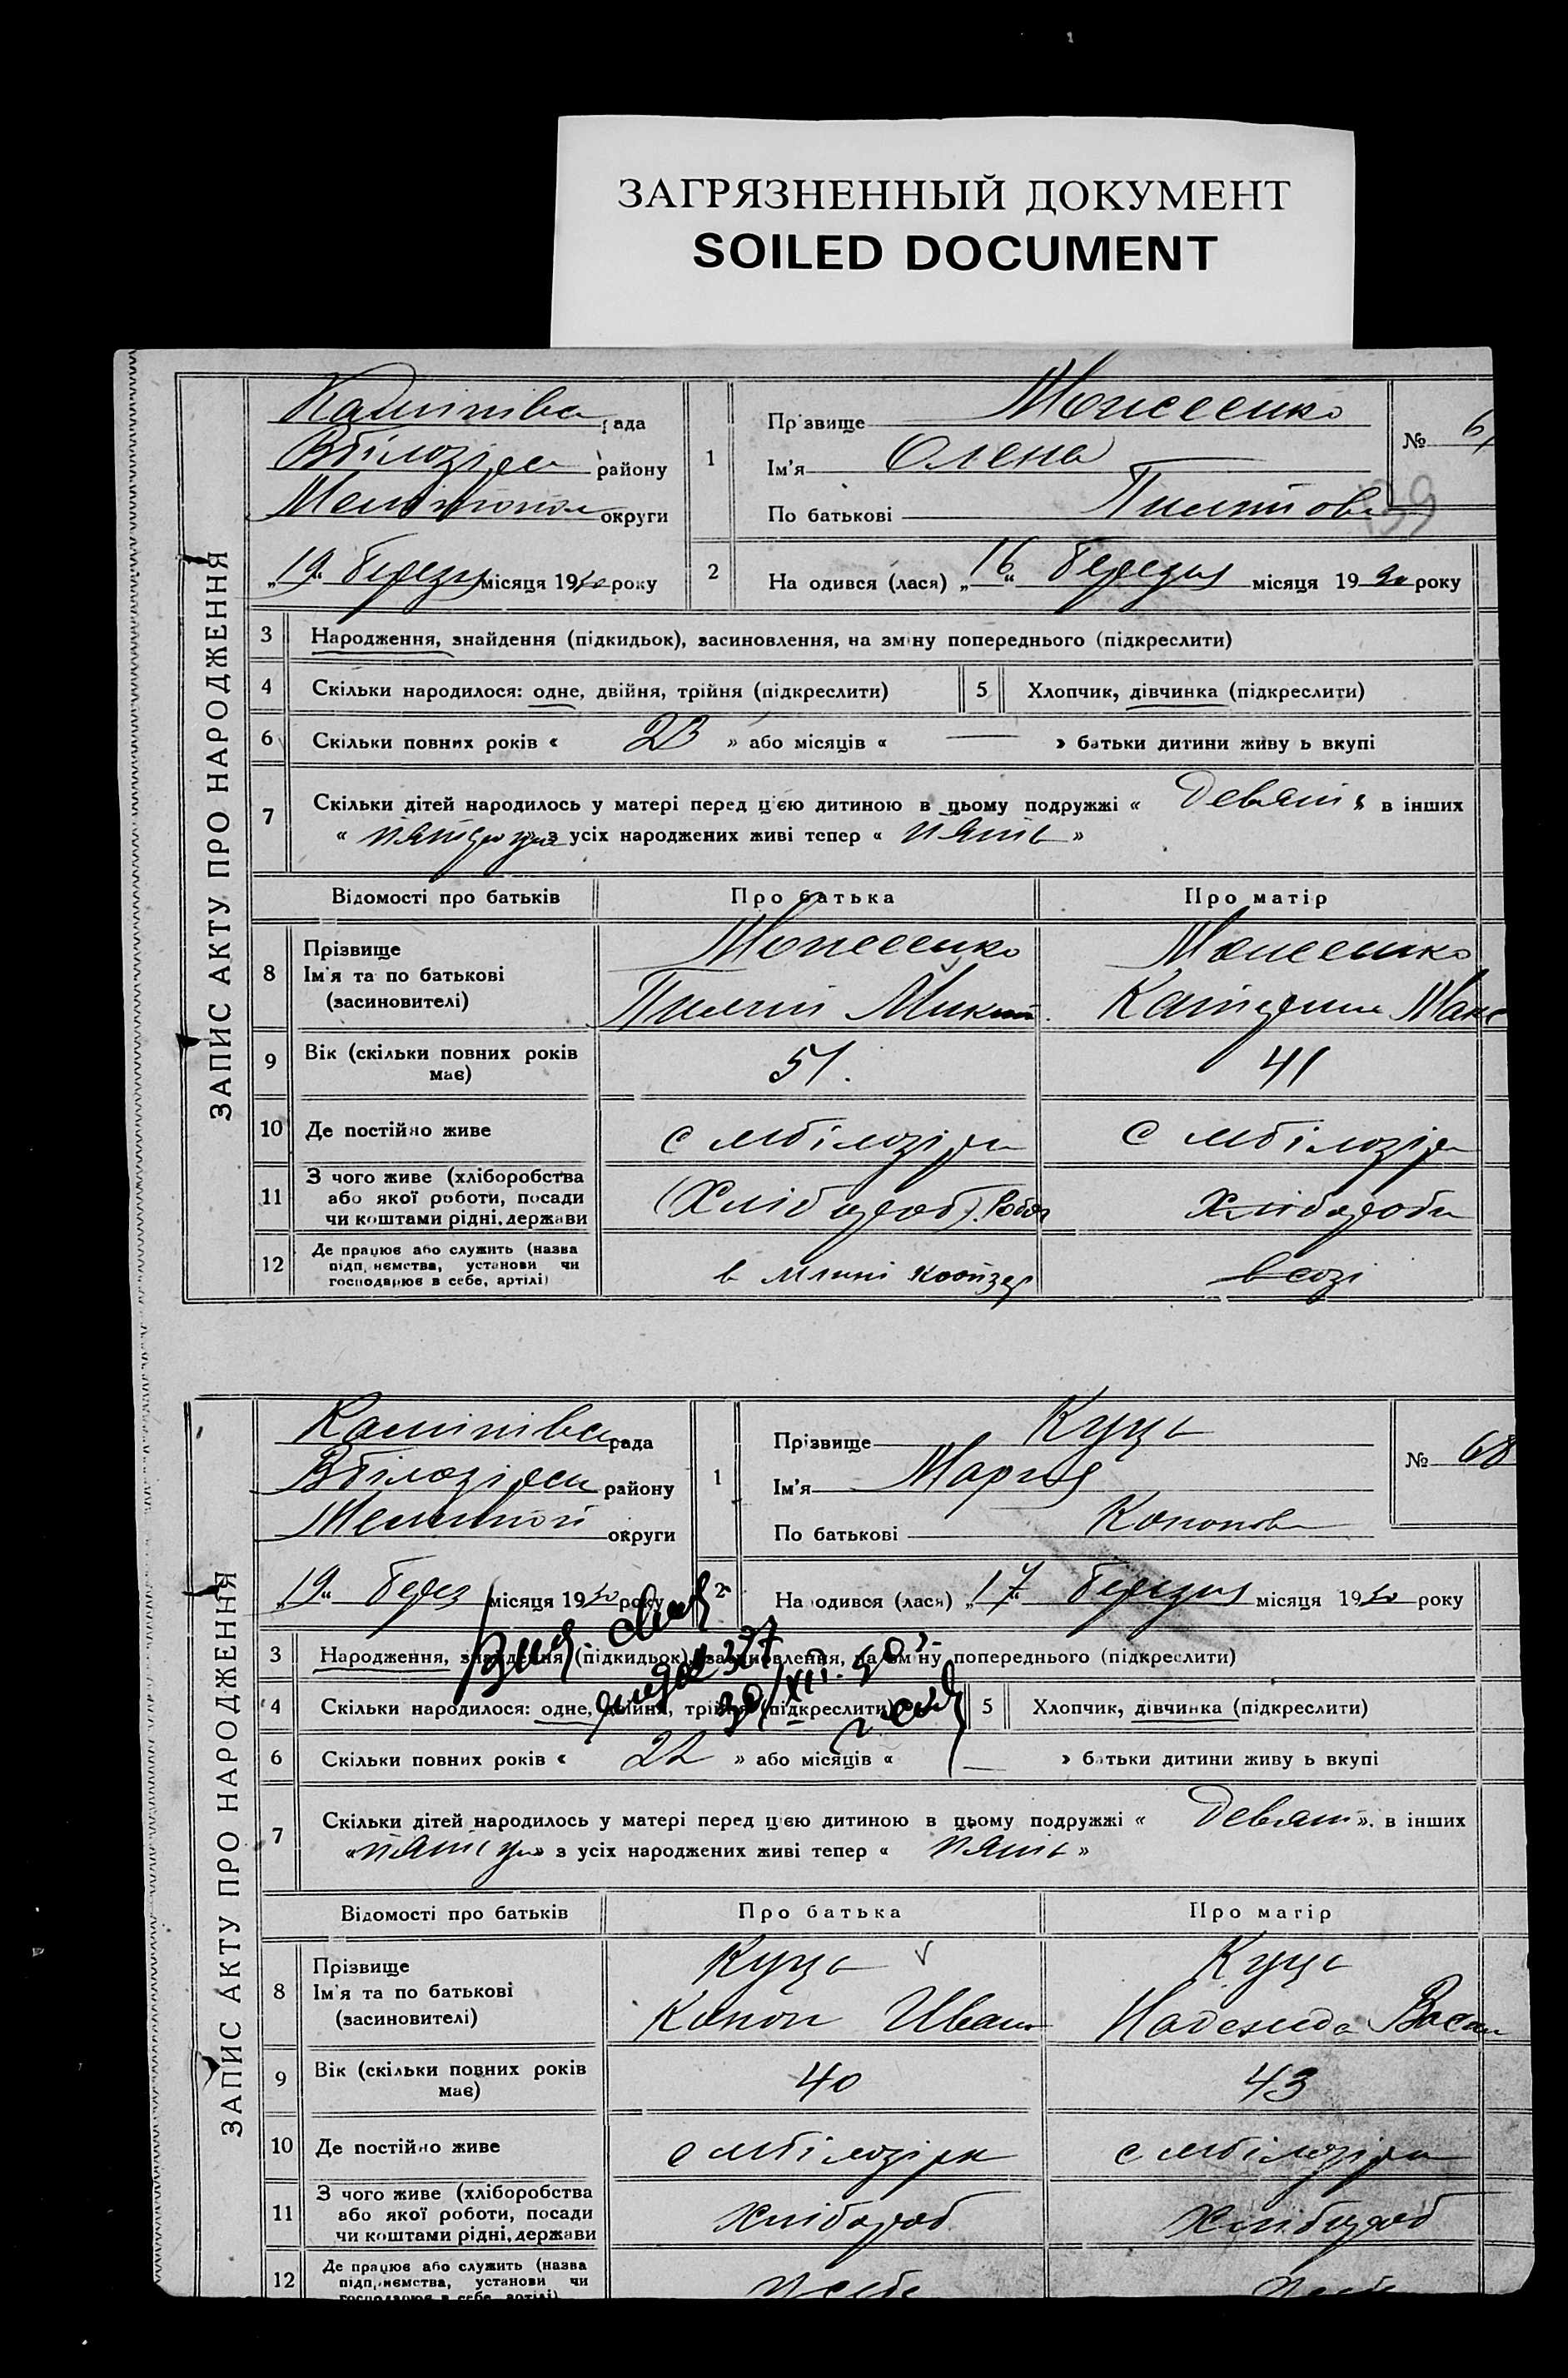 ЗАГРЯЗНЕННЫЙ ДОКУМЕНТ
SOILED DOCUMENT
ЗАПИС АКТУ ПРО НАРОДЖЕННЯ
рада
району
округи
„19“ березня місяця 1930 року
1 Прізвище Моисеенко
Ім'я Олена
По батькові
№
139
2 На одився (лася) „16“ березня місяця 1930 року
3 Народження, знайдення (підкидьок), засиновлення, на зміну попереднього (підкреслити)
4 Скільки народилося: одне, двійня, трійня (підкреслити)
5 Хлопчик, дівчинка (підкреслити)
6 Скільки повних років « 23 » або місяців « — » батьки дитини живу ь вкупі
7 Скільки дітей народилось у матері перед цією дитиною в цьому подружжі « Девять » в інших
« » з усіх народжених живі тепер « пять »
Відомості про батьків
Про батька
Про матір
8 Прізвище
Ім'я та по батькові
(засиновителі)
Моисеенко
Моисеенко
9 Вік (скільки повних років
має)
51.
41
10 Де постійно живе
с мбілозірка
с мбілозірка
11 З чого живе (хліборобства
або якої роботи, посади
чи коштами рідні, держави
(Хлібороб)
Хлібороб
12 Де працює або служить (назва
підприємства, установи чи
господарює в себе, артілі)
в млині
ЗАПИС АКТУ ПРО НАРОДЖЕННЯ
рада
району
округи
„19“ берез місяця 1930 року
1 Прізвище Куць
Ім'я Мария
По батькові Кононовна
№ 68
2 На одився (лася) „17“ березня місяця 1930 року
3 Народження, знайдення (підкидьок), засиновлення, на зміну попереднього (підкреслити)
4 Скільки народилося: одне, двійня, трійня (підкреслити)
5 Хлопчик, дівчинка (підкреслити)
6 Скільки повних років « 22 » або місяців « — » батьки дитини живу ь вкупі
7 Скільки дітей народилось у матері перед цією дитиною в цьому подружжі « Девять ». в інших
« » з усіх народжених живі тепер « пять »
Відомості про батьків
Про батька
Про матір
8 Прізвище
Ім'я та по батькові
(засиновителі)
Куць
Конон Иван
Куць
Надежда Васил
9 Вік (скільки повних років
має)
40
43
10 Де постійно живе
с мбілозірк
с мбілозірка
11 З чого живе (хліборобства
або якої роботи, посади
чи коштами рідні, держави
Хлібороб
Хлібороб
12 Де працює або служить (назва
підприємства, установи чи
господарює в себе, артілі)